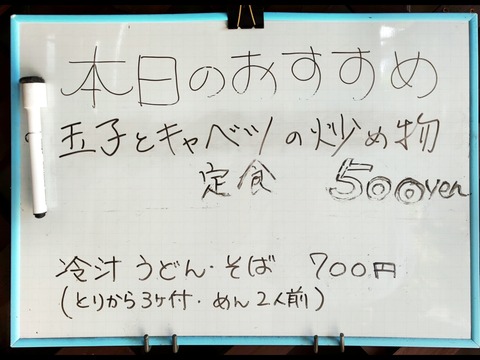 本日のおすすめ
玉子とキャベツの炒め物
定食 500yen
冷汁 うどん・そば 700円
(とりから3ケ付・めん2人前)